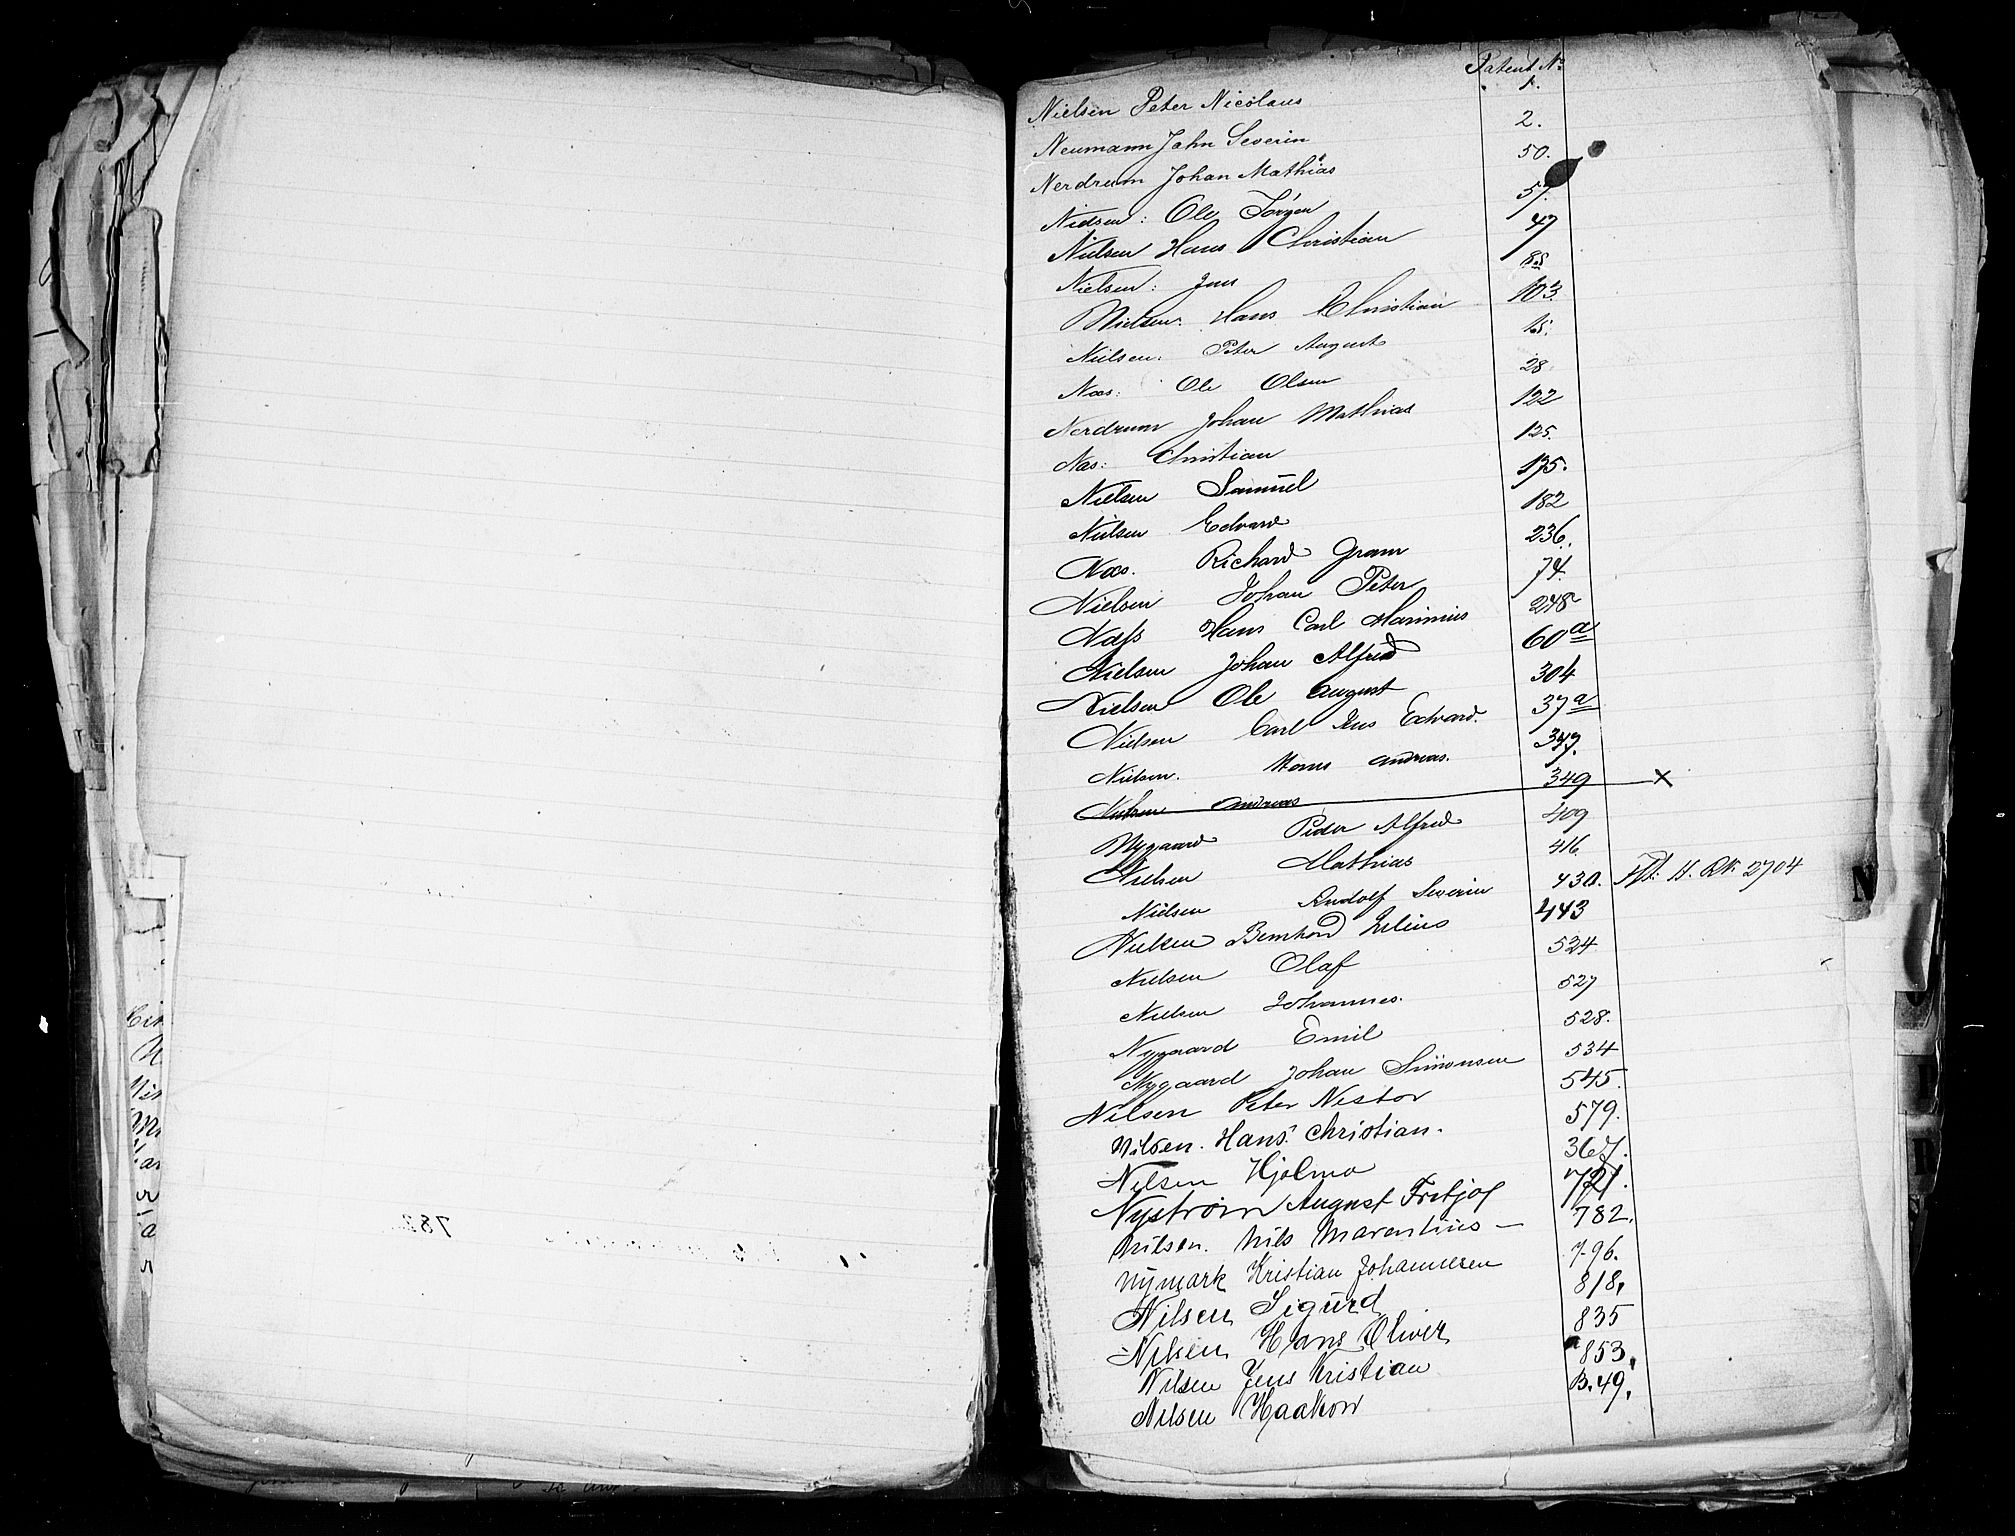 Patent No
Nielsen Peter Nicolaus 1.
Neumann John Severin 2.
Nerdrum Johan Mathias 50.
Nielsen: Ole Jørgen 57.
Nielsen Hans Christian 47
Nielsen: Jens 85
Nielsen: Hans Christian 103.
Nielsen: Peter August 15.
Næs: Ole Olsen 28
Nerdrum Johan Mathias 122
Næs: Christian 125.
Nielsen Samuel 175.
Nielsen Edvard 182
Næs. Richard Gram 236.
Nielsen Johan Peter 74.
Næss Hans Carl Marinius 248
Nielsen Johan Alfred 60a
Nielsen Ole August 304
Nielsen Carl Jens Edvard. 37a
Nielsen. Hans Andreas. 347.
Nielsen Andreas 349 X
Nygaard Peder Alfred 409
Nielsen Mathias 416.
Nielsen Rudolf Severin 430. H. 2704
Nielsen Bernhard Julius 443
Nielsen Olaf 524
Nielsen Johannes. 527
Nygaard Emil 528.
Nygaard Johan Simonsen 534
Nilsen Peter Nestor 545.
Nilsen. Hans Christian. 579.
Nilsen Hjalmar 367.
Nystrøm August Fritjof 721.
Nilsen. Nils Marentius — 782.
Nymark Kristian Johannesen 796.
Nilsen Sigurd 818.
Nilsen Hans Oliver 835
Nilsen Jens Kristian 853.
Nilsen Haakon B. 49.
N